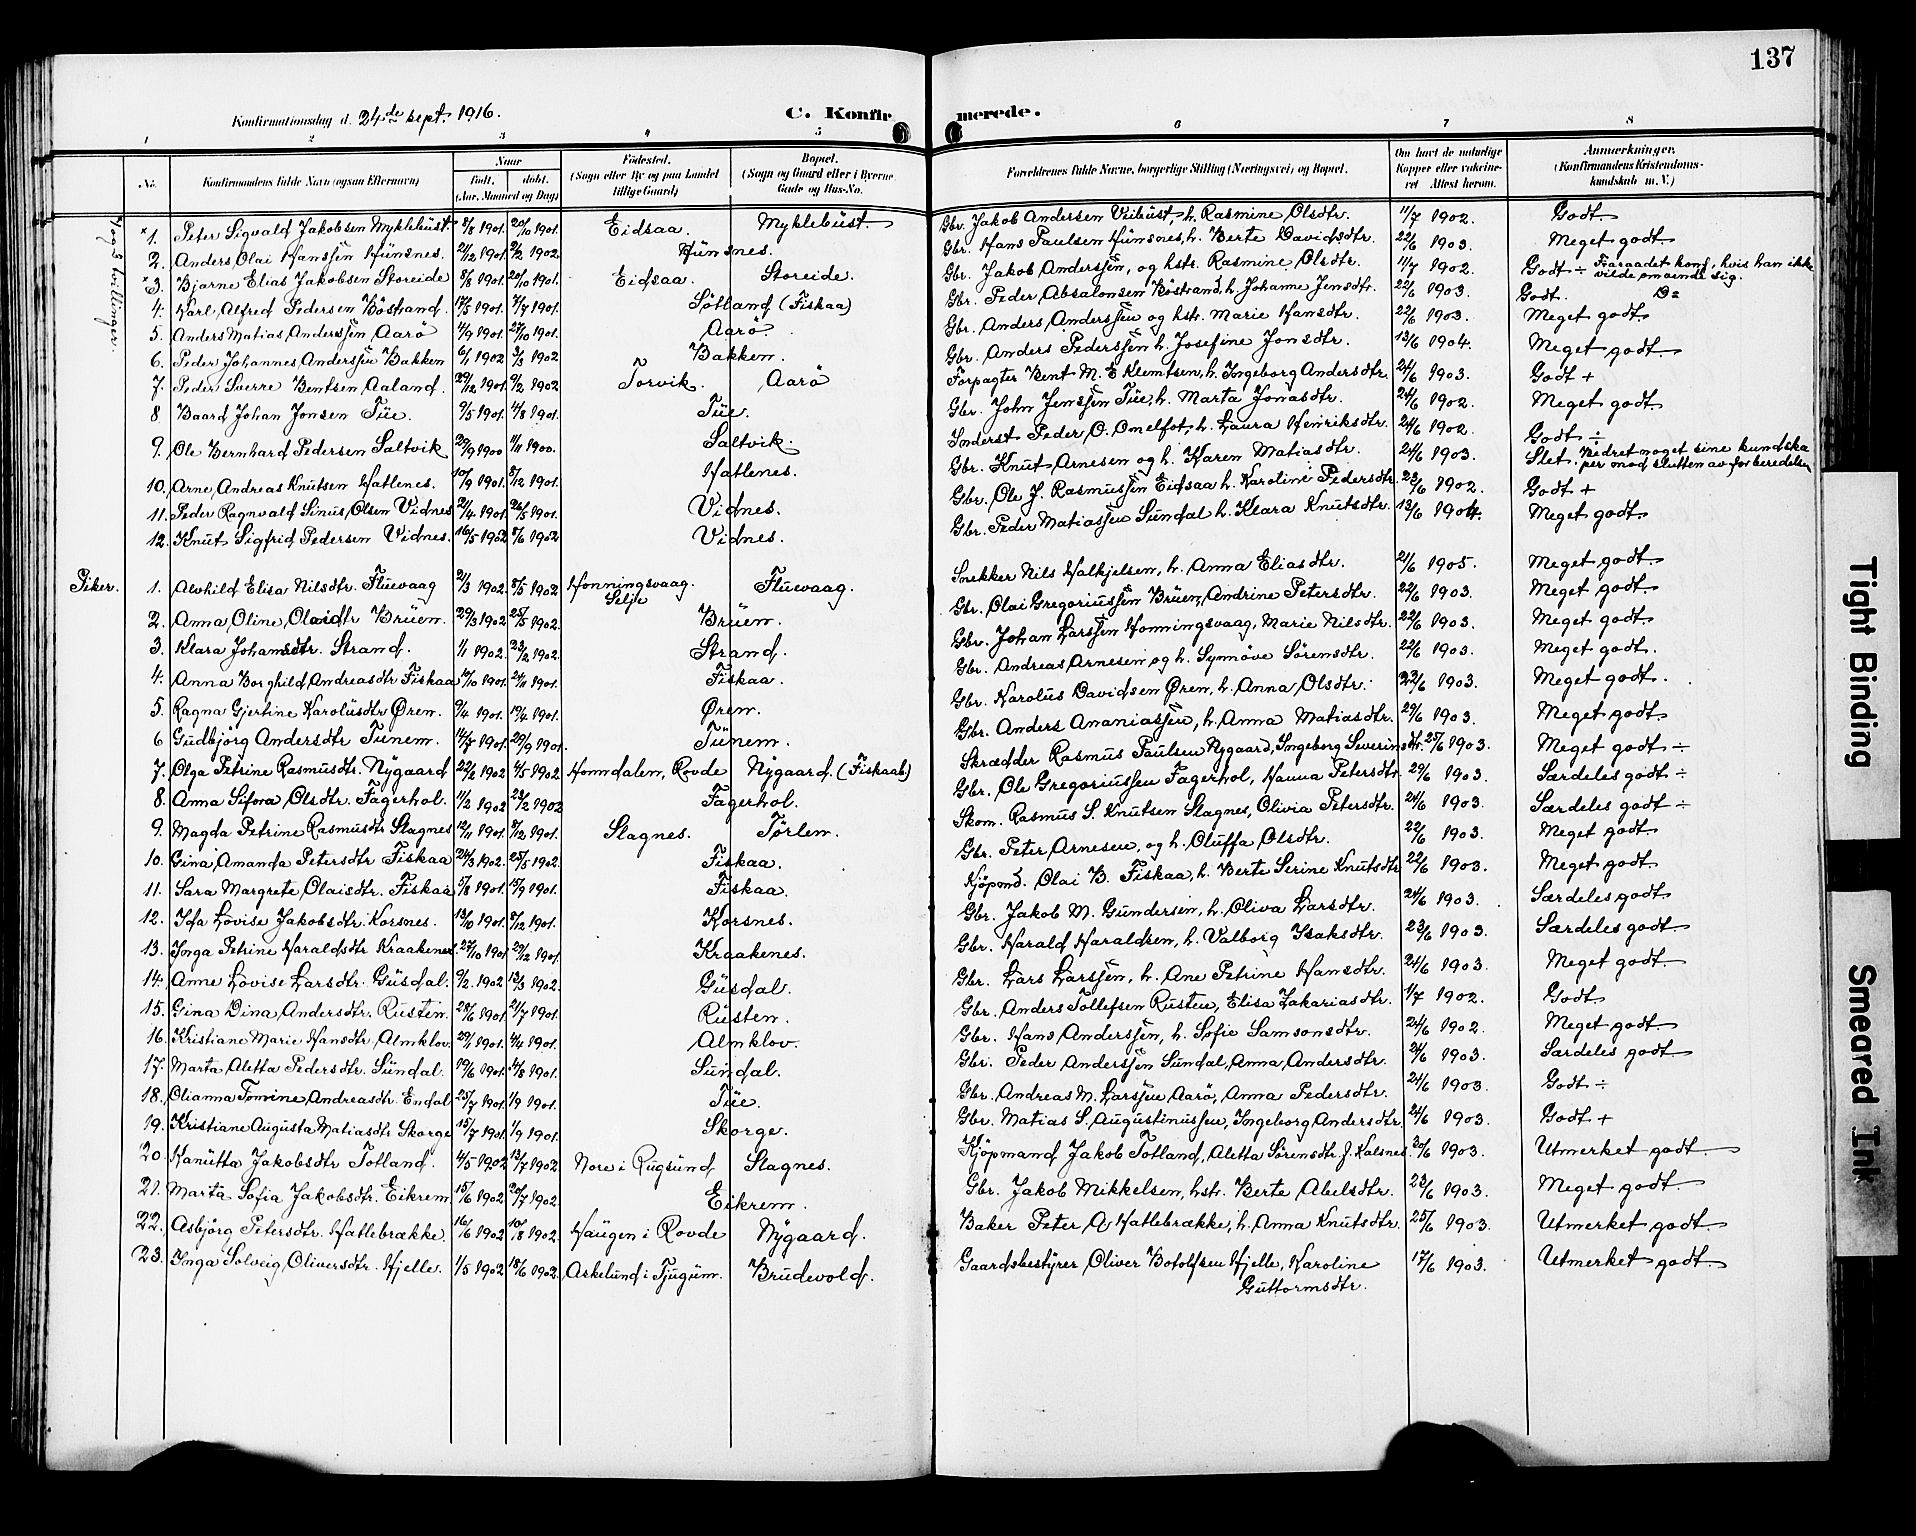 137
Konfirmationsdag d. 24de sept. 1916. C. Konfirmerede.
1 2 3 4 5 6 7 8
No. Konfirmandens fulde Navn (ogsaa Efternavn) Naar født. døbt. (Aar, Maaned og Dag) Fødested. (Sogn eller By og paa Landet tillige Gaard) Bopæl. (Sogn og Gaard eller i Byerne Gade og Hus-No. Forældrenes fulde Navne, borgerlige Stilling (Næringsvei) og Bopæl. Om havt de naturlige Kopper eller vakcineret Attest herom. Anmærkninger. (Konfirmandens Kristendomskundskab m. V.)
1 og 3 tvillinger.
×1. Peter Sigvald Jakobsen Myklebüst 8/8 1901. 20/10 1901. Eidsaa. Myklebüst. Gbr. Jakob Andersen Veibüst, h. Rasmine Olsdtr. 11/7 1902. Godt.
2. Anders Olai Hanssen Hünsnes. 21/12 1901. 2/2 1902 Hünsnes. Gbr. Hans Paulsen Hünsnes, h. Berte Davidsdtr. 22/6 1903. Meget godt.
×3. Bjarne Elias Jakobsen Storeide 8/8 1901. 20/10 1901. Eidsaa. Storeide. Gbr. Jakob Anderssen, og hstr. Rasmine Olsdtr. 11/7 1902. Godt ÷ Fraraadet konf, hvis han ikke vilde omvende sig.
4. Karl Alfred Pedersen Böstrand. 17/5 1901. 7/7 1901. Søtland (Fiskaa) Gbr. Peder Absalonsen Böstrand, h. Johanne Jensdtr. 22/6 1903. Godt.
5. Anders Matias Anderssen Aarö 4/9 1901. 27/10 1901. Aarö. Gbr. Anders Anderssen og hstr. Marie Hansdtr. 22/6 1903. Meget godt
6. Peder Johannes Anderssen Bakken 6/1 1902 3/3 1902 Bakken. Gbr. Anders Pederssen h. Josefine Jonsdtr. 13/6 1904. Meget godt.
7. Peder Sverre Bentsen Aaland. 29/12 1901. 9/2 1902 Torvik. Aarö Forpagter Bent M. E Klemtsen, h. Ingeborg Andersdtr. 24/6 1903. Godt +
8 Baard Johan Jonsen Tüe. 9/5 1901. 4/8 1901. Tüe. Gbr. John Jenssen Tüe, h. Marta Jonasdtr. 24/6 1902. Meget godt
9. Ole Bernhard Pedersen Saltvik 29/9 1900 1/11 1900. Saltvik. Inderst Peder O. Omelfot, h. Laura Henriksdtr. 24/6 1902. Godt ÷
10. Arne Andreas Knutsen Hatlenes. 10/9 1901. 8/12 1901. Hatlenes. Gbr. Knut Arnesen og h. Karen Matiasdtr. 24/6 1903. Slet. Bedret noget sine kundskaper mod slutten av forberedelsen
11. Peder Ragnvald Sinus Olsen Vidnes 21/4 1901. 26/5 1901. Vidnes. Gbr. Ole J. Rasmussen Eidsaa h. Karoline Pedersdtr. 23/6 1902. Godt +
12. Knut Sigfrid Pedersen Vidnes. 16/5 1902 8/6 1902 Vidnes. Gbr. Peder Matiassen Sundal h. Klara Knutsdtr. 13/6 1904. Meget godt.
Piker. 1. Alvhild Elisa Nilsdtr. Fluevaag 21/3 1902. 8/5 1902 Honningsvaag. Selje Fluevaag. Snekker Nils Halkjelsen, h. Anna Eliasdtr. 21/6 1905. Meget godt
2. Anna Oline Olaidtr Brüen. 29/3 1902 25/5 1902. Brüen. Gbr. Olai Gregoriussen Brüen, Andrine Petersdtr. 22/6 1903. Meget godt
3. Klara Johansdtr. Strand. 1/1 1902. 23/2 1902. Strand. Gbr. Johan Larssen Honningsvaag, Marie Nilsdtr. 22/6 1903. Meget godt
4. Anna Borghild Andreasdtr Fiskaa 17/10 1901. 24/11 1901. Fiskaa. Gbr. Andreas Arnesen og h. Synnöve Sörensdtr. 22/6 1903. Meget godt.
5. Ragna Gjertine Karolüsdtr Ören. 9/4 1901. 19/4 1901. Øren. Gbr. Karolus Davidsen Øren, h. Anna Olsdtr. 22/6 1903. Meget godt.
6 Gudbjörg Andersdtr Tünem. 14/8 1901. 29/9 1901. Tünem. Gbr. Anders Ananiassen, h. Anna Matiasdtr. 29/6 1903. Meget godt
7. Olga Petrine Rasmusdtr. Nÿgaard 22/2 1902 4/5 1902. Homdalen, Rovde Nÿgaard. (Fiskaab) Skrædder Rasmus Paulsen Nygaard, Ingeborg Severinsdtr. 25/6 1903. Meget godt ÷
8. Anna Sifora Olsdtr. Fagerhol. 11/2 1902 23/2 1902 Fagerhol. Gbr. Ole Gregoriussen Fagerhol, Hanna Petersdtr 29/6 1903. Særdeles godt ÷
9. Magda Petrine Rasmusdtr Slagnes 12/11 1901. 8/12 1901. Slagnes. Tørlen. Skom. Rasmus S. Knutsen Slagnes, Olivia Petersdtr. 24/6 1903. Særdeles godt ÷
10. Gina Amanda Petersdtr Fiskaa 24/3 1902. 25/5 1902. Fiskaa. Gbr. Peter Arnesen, og h. Oluffa Olsdtr. 22/6 1903. Meget godt
11. Sara Margrete Olaisdtr. Fiskaa 5/8 1901. 15/9 1901. Fiskaa. Kjöpmd. Olai B. Fiskaa, h. Berte Serine Knutsdtr 22/6 1903. Meget godt
12. Ida Lovise Jakobsdtr. Korsnes. 13/10 1901. 8/12 1901. Korsnes. Gbr. Jakob M. Gundersen, h. Oliva Larsdtr. 24/6 1903. Særdeles godt
13. Inga Petrine Haraldsdtr Kraakenes. 27/10 1901 29/12 1901. Kraakenes. Gbr. Harald Haraldsen, h. Valborg Isaksdtr. 23/6 1903. Særdeles godt
14. Anne Lovise Larsdtr. Güsdal. 9/2 1902 13/3 1902. Güsdal. Gbr. Lars Larssen, h. Ane Petrine Hansdtr. 24/6 1903. Meget godt.
15. Gina Dina Andersdtr. Rüsten. 28/6 1901. 21/7 1901. Rüsten. Gbr. Anders Tollefsen Rusten, Elisa Zakariasdtr. 1/7 1902. Godt
16. Kristiane Marie Hansdtr Almklov. 29/1 1901. 4/6 1901. Almklov. Gbr. Hans Anderssen, h. Sofie Samsonsdtr. 24/6 1902. Meget godt.
17. Marta Aletta Pedersdtr. Sündal. 19/6 1901. 4/8 1901. Sündal. Gbr. Peder Anderssen Sundal, Anna Andersdtr. 24/6 1903. Særdeles godt
18. Olianna Tomine Andreasdtr. Endal 25/7 1901. 1/9 1901. Tüe. Gbr. Andreas M. Larssen Aarö, Anna Pedersdtr. 24/6 1903. Godt ÷
19. Kristiane Augusta Matiasdtr Skorge 15/7 1901. 1/9 1901. Skorge. Gbr. Matias S. Augustinussen, Ingeborg Andersdtr. 24/6 1903. Godt +
20. Kanütta Jakobsdtr Totland. 4/5 1902 13/7 1902 Nore i Rugsund Slagnes. Kjöpmand Jakob Totland, Aletta Sörensdtr J. Kalsnes. 30/6 1903. Utmerket godt
21. Marta Sofia Jakobsdtr. Eikrem. 15/6 1902. 20/7 1902. Eikrem. Gbr. Jakob Mikkelsen, hstr. Berte Abelsdtr. 23/6 1903. Meget godt.
22. Asbjörg Petersdtr. Hatlebrække. 16/6 1902 10/8 1902. Haugen i Rovde Nÿgaard. Baker Peter A Hatlebrække, h. Anna Knutsdtr. 25/6 1903. Utmerket godt
23. Inga Solveig Oliversdtr. Hjelle. 1/5 1902 15/6 1902. Askelund i Fjugum. Brudevold. Gaardsbestyrer Oliver Botolfsen Hjelle, Karoline Guttormsdtr. 17/6 1903. Utmerket godt
Tight Binding
Smeared Ink